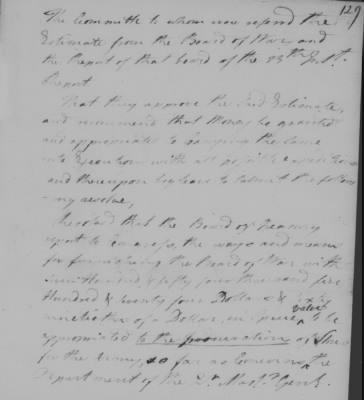 129
The Committee to whom was referred the
Estimate from the Board of War and
the Report of that board of the 25th Inst.
Report.
That they approve the said Estimate,
and recommend that Money be granted
and appropriated to carrying the same
into Execution with all possible expedition
and thereupon beg leave to submit the follow
ing resolve,
Resolved that the Board of Treasury
report to Congress, the ways and means
for furnishing the Board of War with
Hundred & fifty four thousand five
Hundred & twenty four Dollars &
ninetieths of a Dollar, in specie value to be
appropriated to the of
for the Army, so far as concerns the
Department of the Qr. Mastr. Genl.